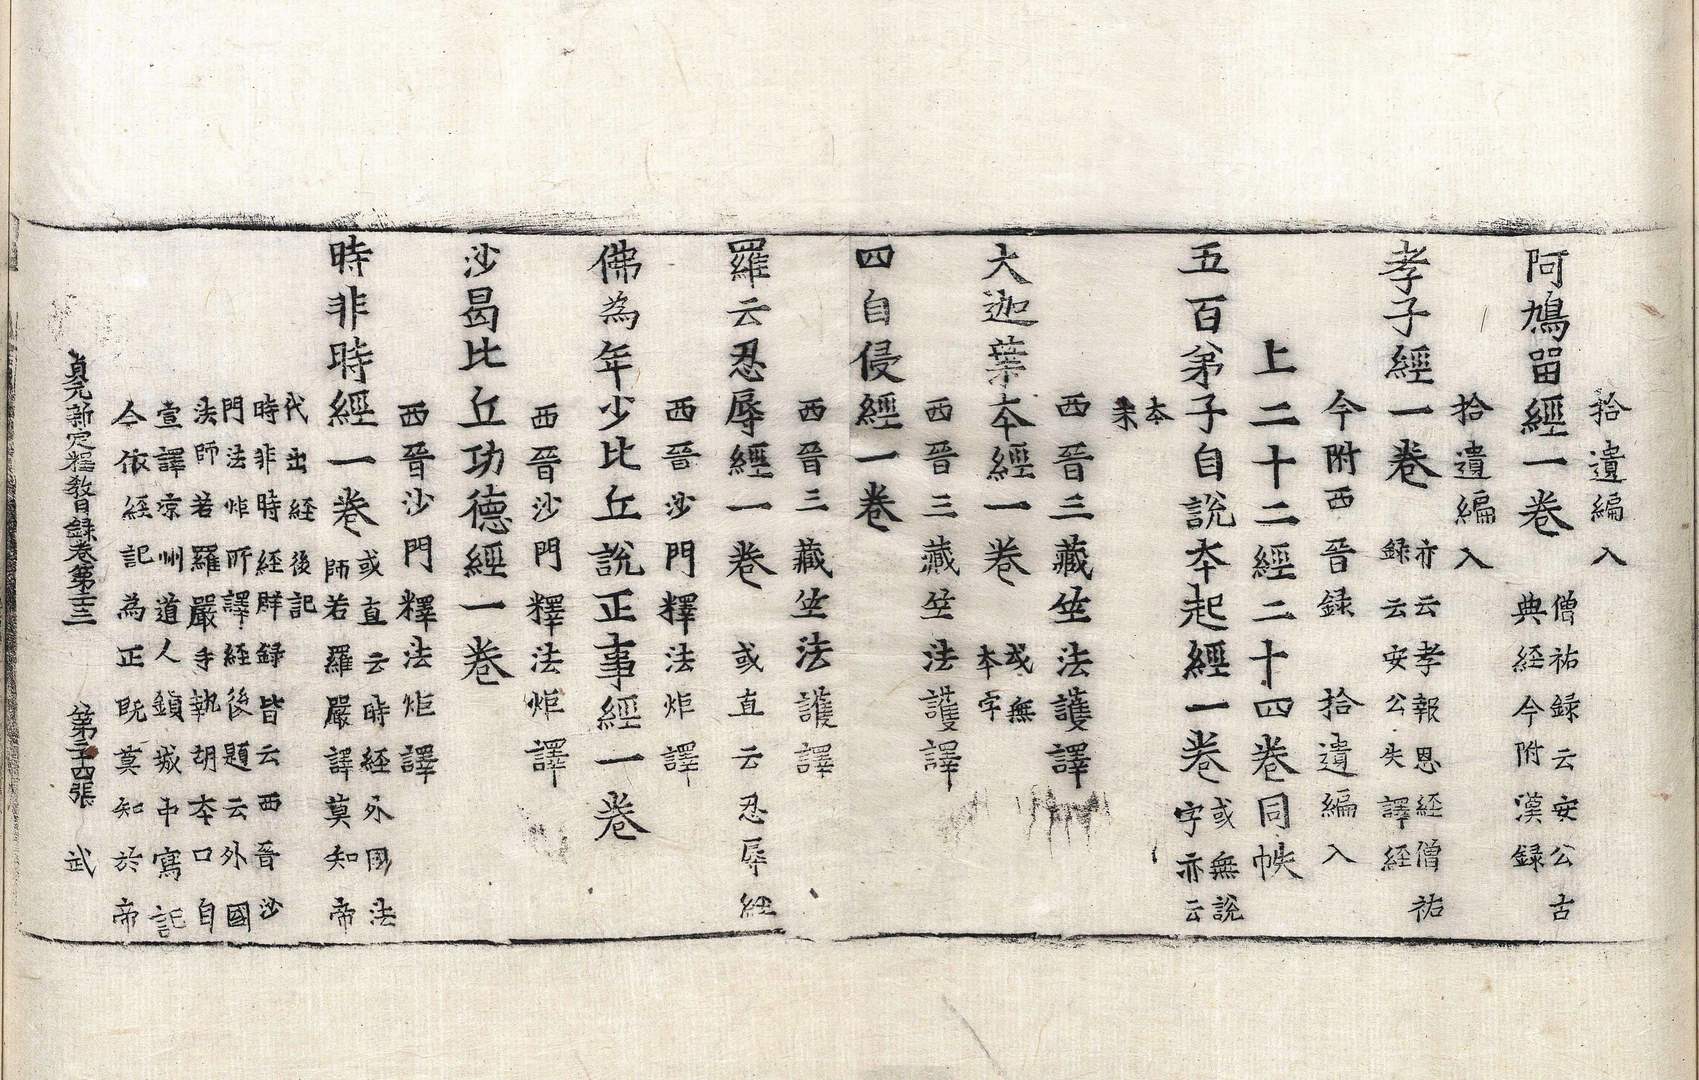 拾遺編入
阿鳩留經一卷
僧祐録云安公古
典経今附漢録
拾遺編入
孝子經一卷
亦云孝報恩経僧祐
録云安公失譯経
今附西晉録 拾遺編入
上二十二經二十四卷同帙
五百弟子自說本起經一卷
或無說
字亦云
本
末
西晉三藏竺法護譯
大迦葉本經一卷
或無
本字
西晉三藏竺法護譯
四自侵經一卷
西晉三藏竺法護譯
羅云忍辱經一卷 或直云忍辱經
西晉沙門釋法炬譯
佛為年少比丘說正事經一卷
西晉沙門釋法炬譯
沙曷比丘功德經一卷
西晉沙門釋法炬譯
時非時經一卷
或直云時経外國法
師若羅嚴譯莫知帝
代出経後記
時非時経群録皆云西晉沙
門法炬所譯経後題云外國
法師若羅嚴手執胡本口自
宣譯涼州道人䥐城中寫記
今依経記為正既莫知於帝
貞元新定釋教目録卷第三十三 第二十四張 武